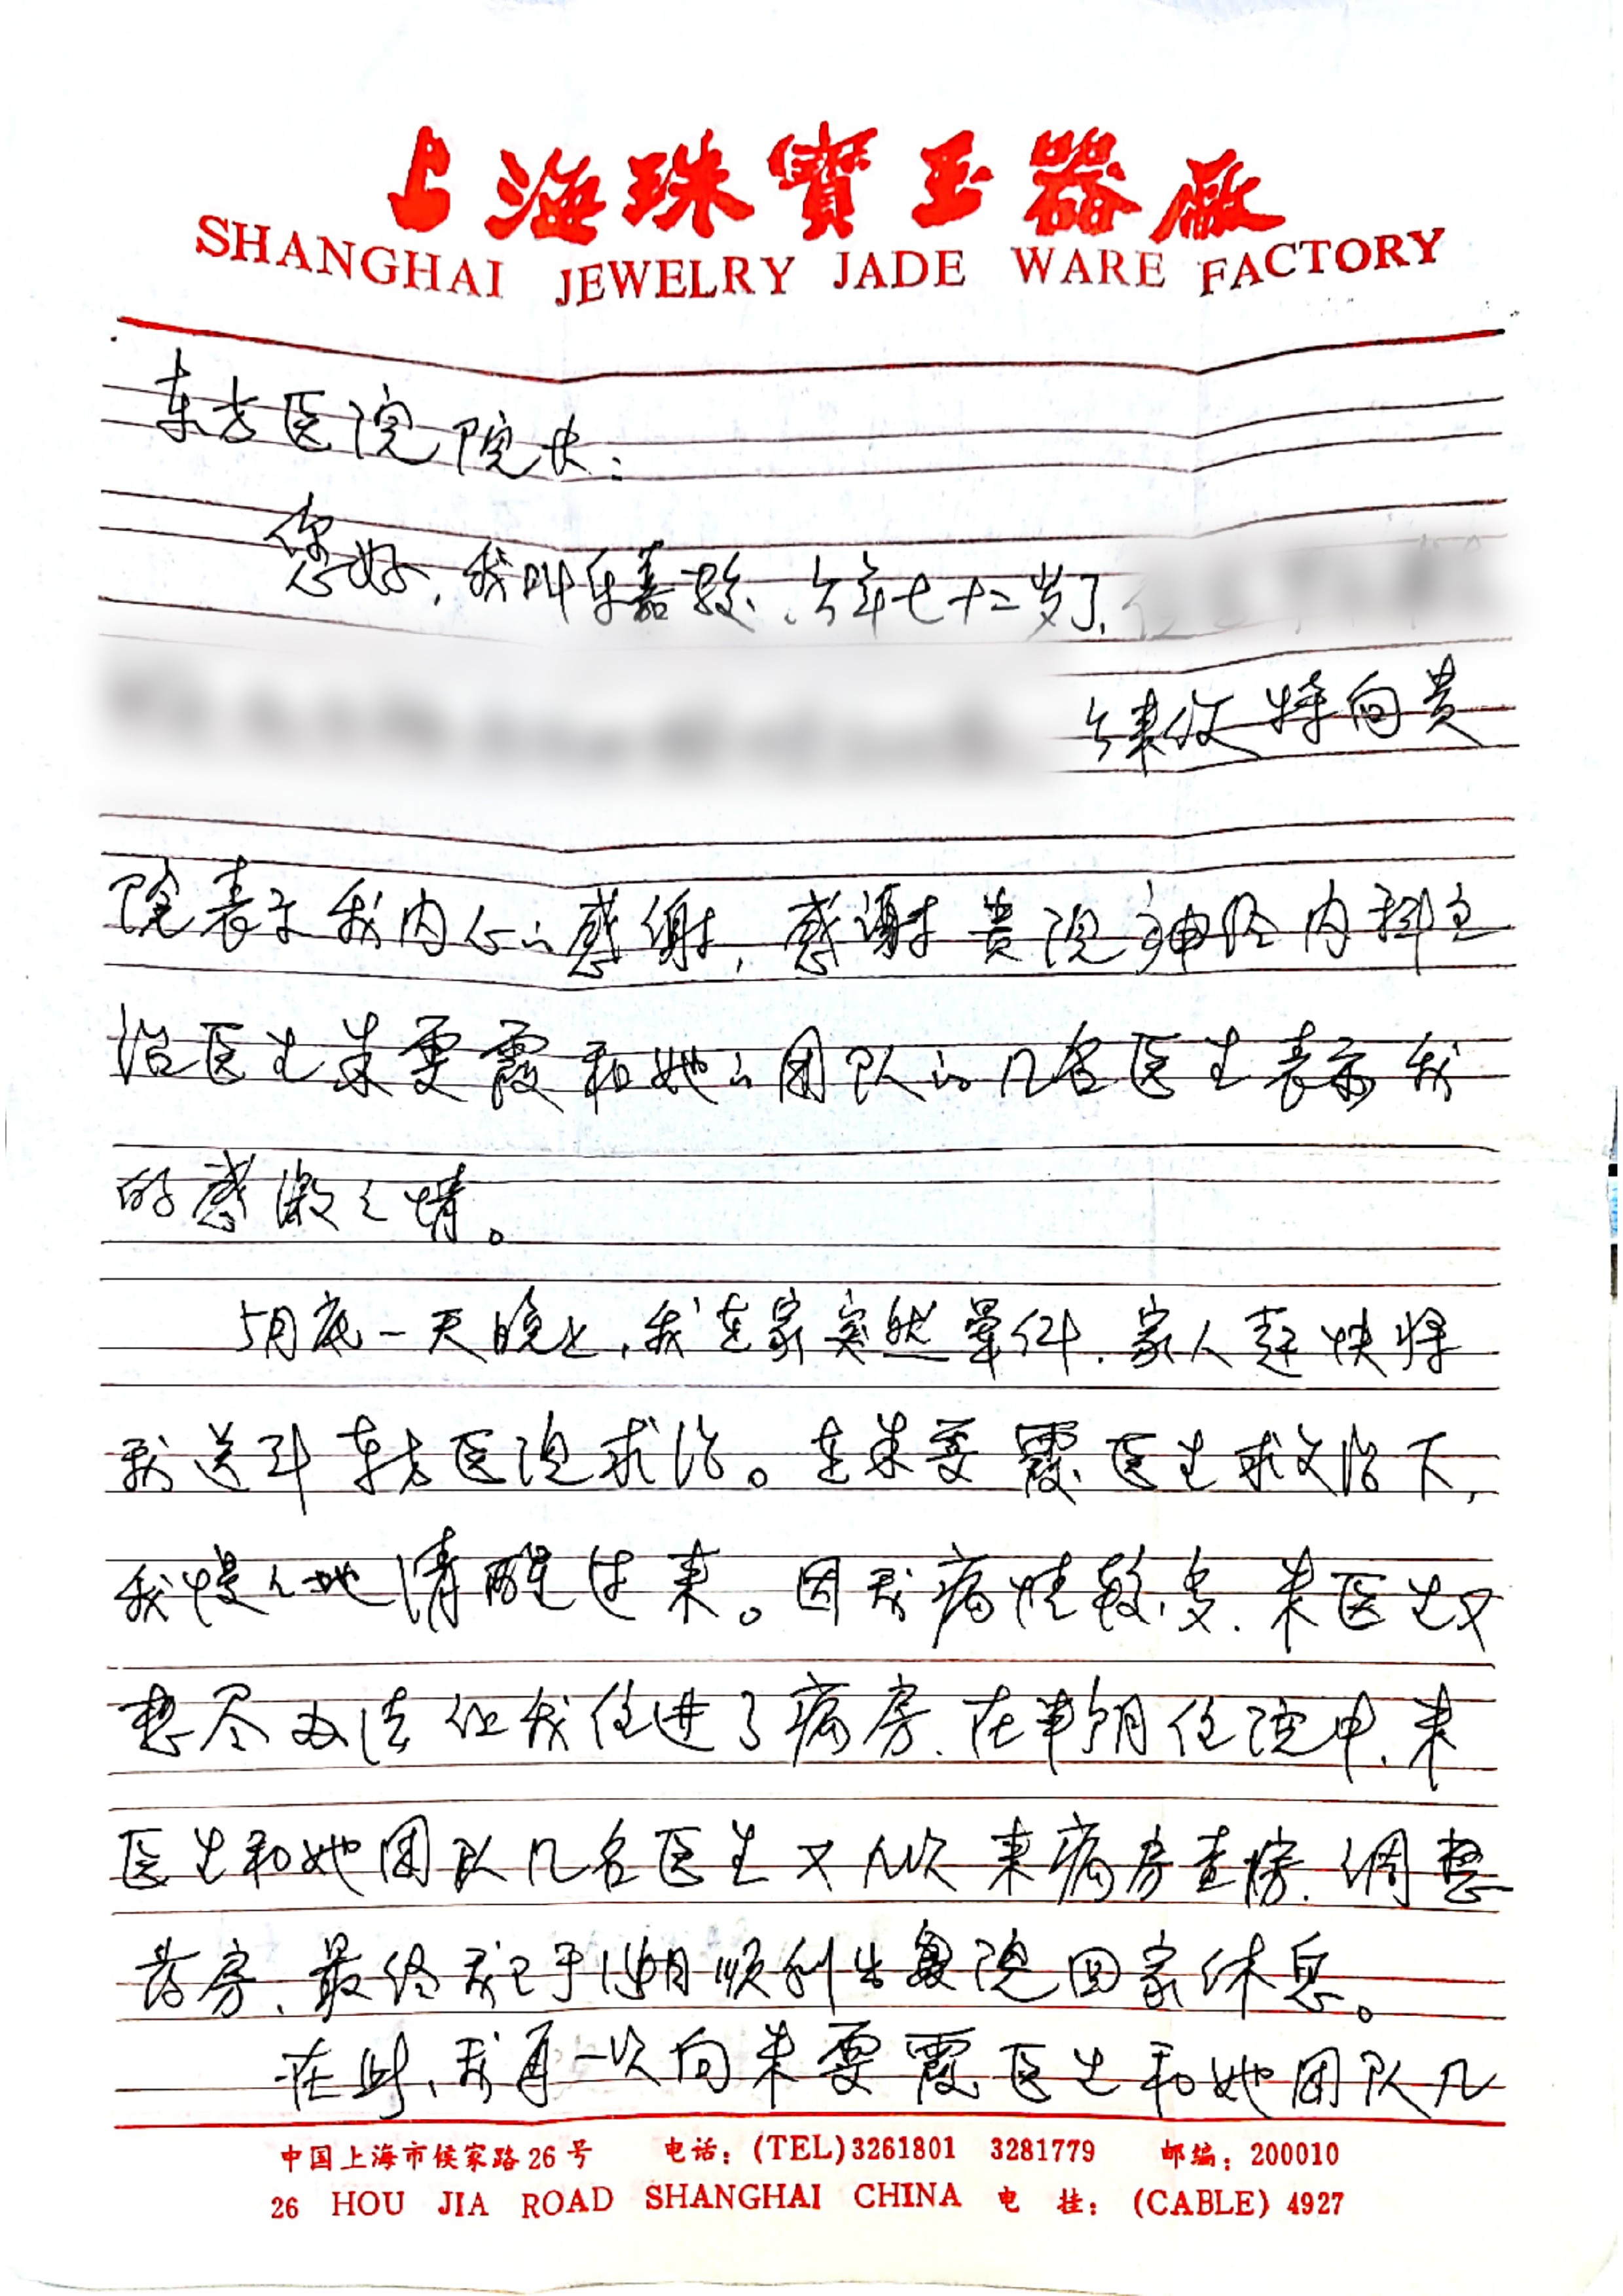 上海珠寶玉器廠
SHANGHAI JEWELRY JADE WARE FACTORY
东方医院院长:
您好,我叫乐嘉,今年七十二岁了,
今来信特向贵
院表示我内心的感谢,感谢贵院神经内科主
治医生朱雯霞和她的团队的几名医生表示我
的感激之情。
5月底一天晚上,我在家突然晕倒,家人赶快将
我送到东方医院求治。在朱雯霞医生救治下,
我慢慢地清醒过来。因我病情较多,朱医生又
想尽办法让我住进了病房、在半月住院中、朱
医生和她团队几名医生又几次来病房查房、调整
药房、最终我已于月顺利出院回家休息。
在此、我再一次向朱雯霞医生和她团队几
中国上海市侯家路26号 电话:(TEL)3261801 3281779 邮编:200010
26 HOU JIA ROAD SHANGHAI CHINA 电 挂:(CABLE)4927